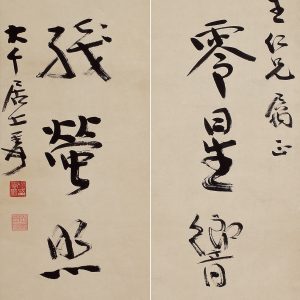 仁兄屬正
零星響
螢照
大千居士爰